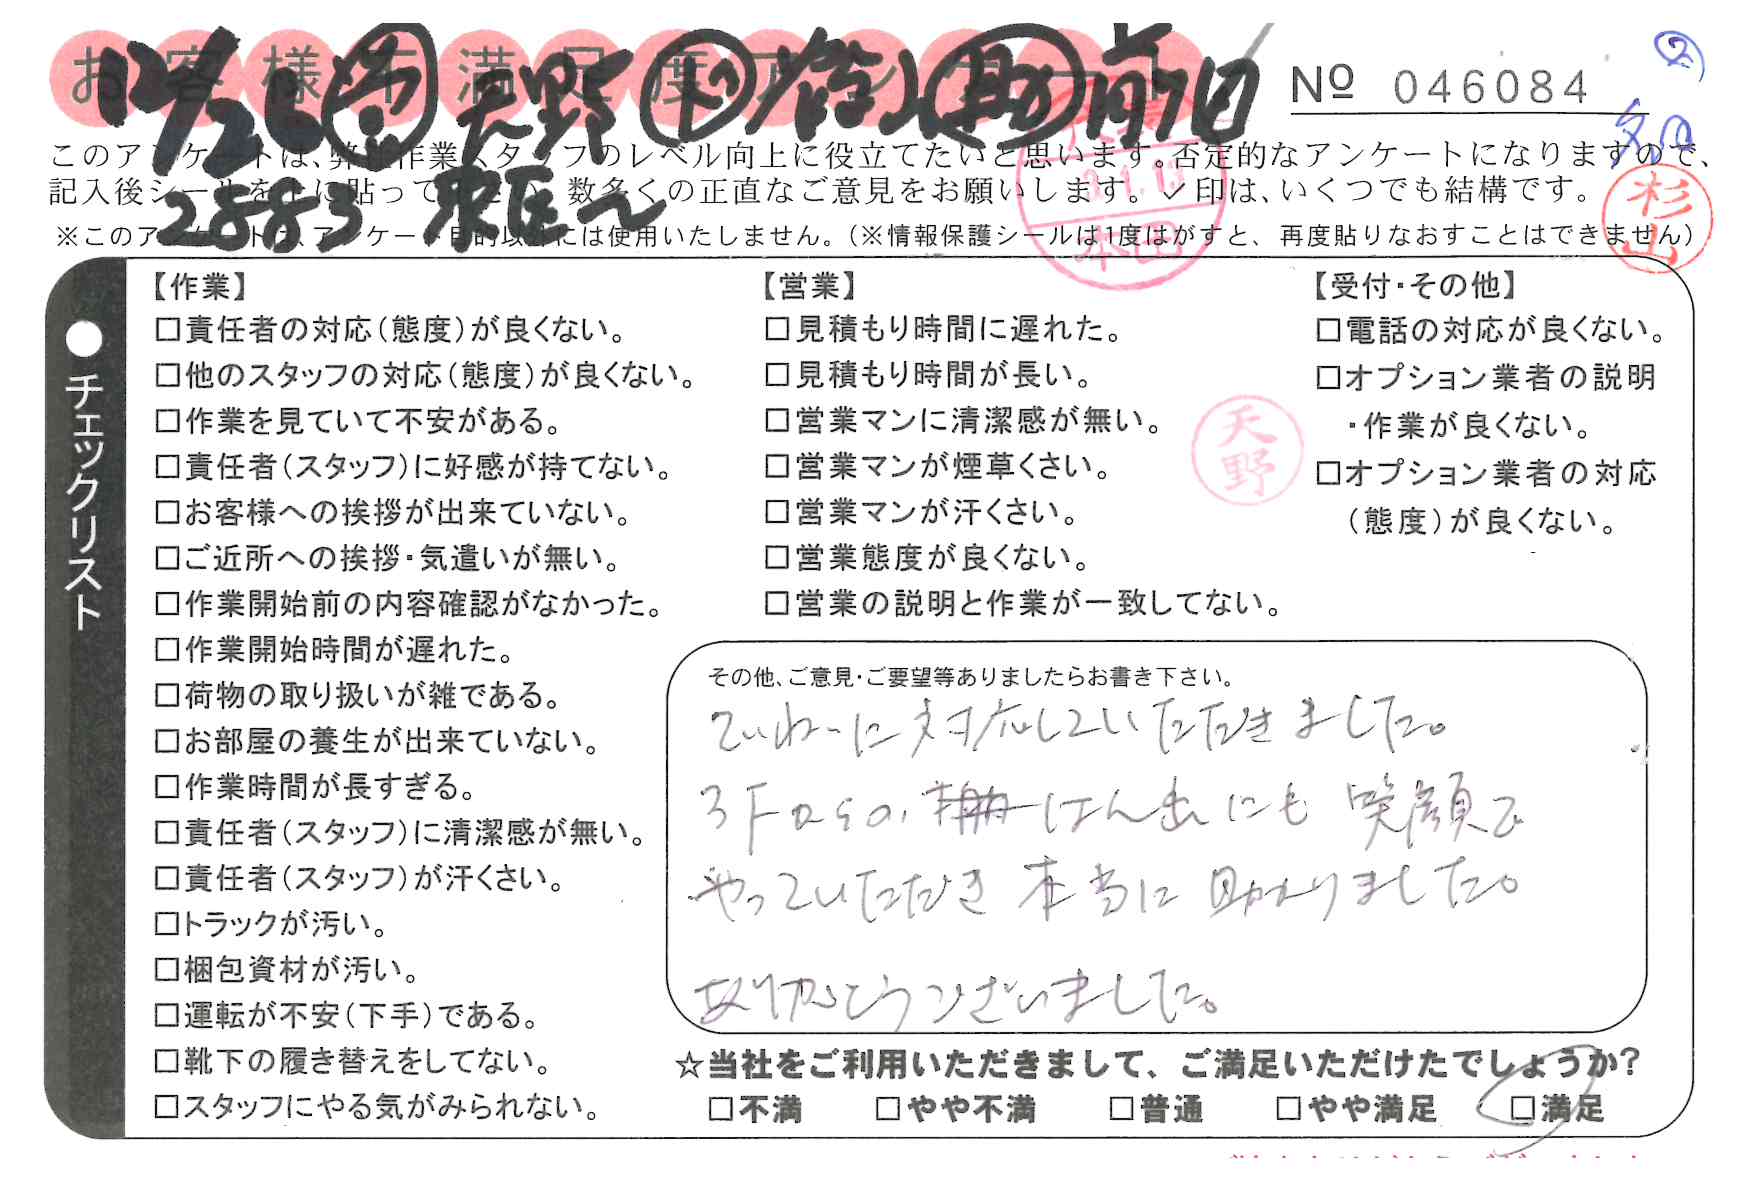 お客様不満足度アンケート
12/26 天野 前日
№ 046084
②
このアンケートは、弊社作業スタッフのレベル向上に役立てたいと思います。否定的なアンケートになりますので、
記入後シールを上に貼って下さい。数多くの正直なご意見をお願いします。✓印は、いくつでも結構です。
28883
※このアンケートは、アンケート目的以外には使用いたしません。（※情報保護シールは1度はがすと、再度貼りなおすことはできません）
本田
杉山
天野
●チェックリスト
【作業】
□責任者の対応（態度）が良くない。
□他のスタッフの対応（態度）が良くない。
□作業を見ていて不安がある。
□責任者（スタッフ）に好感が持てない。
□お客様への挨拶が出来ていない。
□ご近所への挨拶・気遣いが無い。
□作業開始前の内容確認がなかった。
□作業開始時間が遅れた。
□荷物の取り扱いが雑である。
□お部屋の養生が出来ていない。
□作業時間が長すぎる。
□責任者（スタッフ）に清潔感が無い。
□責任者（スタッフ）が汗くさい。
□トラックが汚い。
□梱包資材が汚い。
□運転が不安（下手）である。
□靴下の履き替えをしてない。
□スタッフにやる気がみられない。
【営業】
□見積もり時間に遅れた。
□見積もり時間が長い。
□営業マンに清潔感が無い。
□営業マンが煙草くさい。
□営業マンが汗くさい。
□営業態度が良くない。
□営業の説明と作業が一致してない。
【受付・その他】
□電話の対応が良くない。
□オプション業者の説明
・作業が良くない。
□オプション業者の対応
（態度）が良くない。
その他、ご意見・ご要望等ありましたらお書き下さい。
ていねーに対応していただきました。
3Fからの、はん出にも笑顔で
やっていただき本当に助かりました。
ありがとうございました。
☆当社をご利用いただきまして、ご満足いただけたでしょうか？
□不満 □やや不満 □普通 □やや満足 □満足